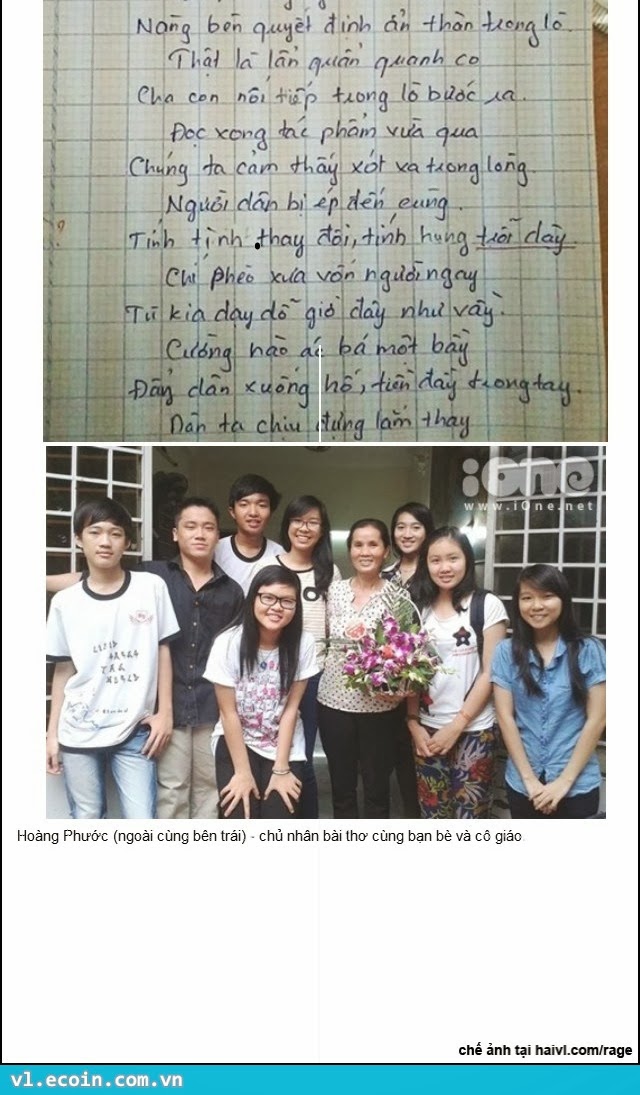 Nàng bèn quyết định ẩn thân trong lò.
Thật là lẩn quẩn quanh co
Cha con nối tiếp trong lò bước ra.
Đọc xong tác phẩm vừa qua
Chúng ta cảm thấy xót xa trong lòng.
Người dân bị ép đến cùng.
?
Tính tình thay đổi, tính hung trỗi dậy.
Chí Phèo xưa vốn người ngay
Từ kia dạy dỗ giờ đây như vầy.
Cường hào ác bá một bầy
Đẩy dân xuống hố, tiền đầy trong tay.
Dân ta chịu đựng lắm thay
iOne
www.iOne.net
Hoàng Phước (ngoài cùng bên trái) - chủ nhân bài thơ cùng bạn bè và cô giáo
chế ảnh tại haivl.com/rage
vl.ecoin.com.vn